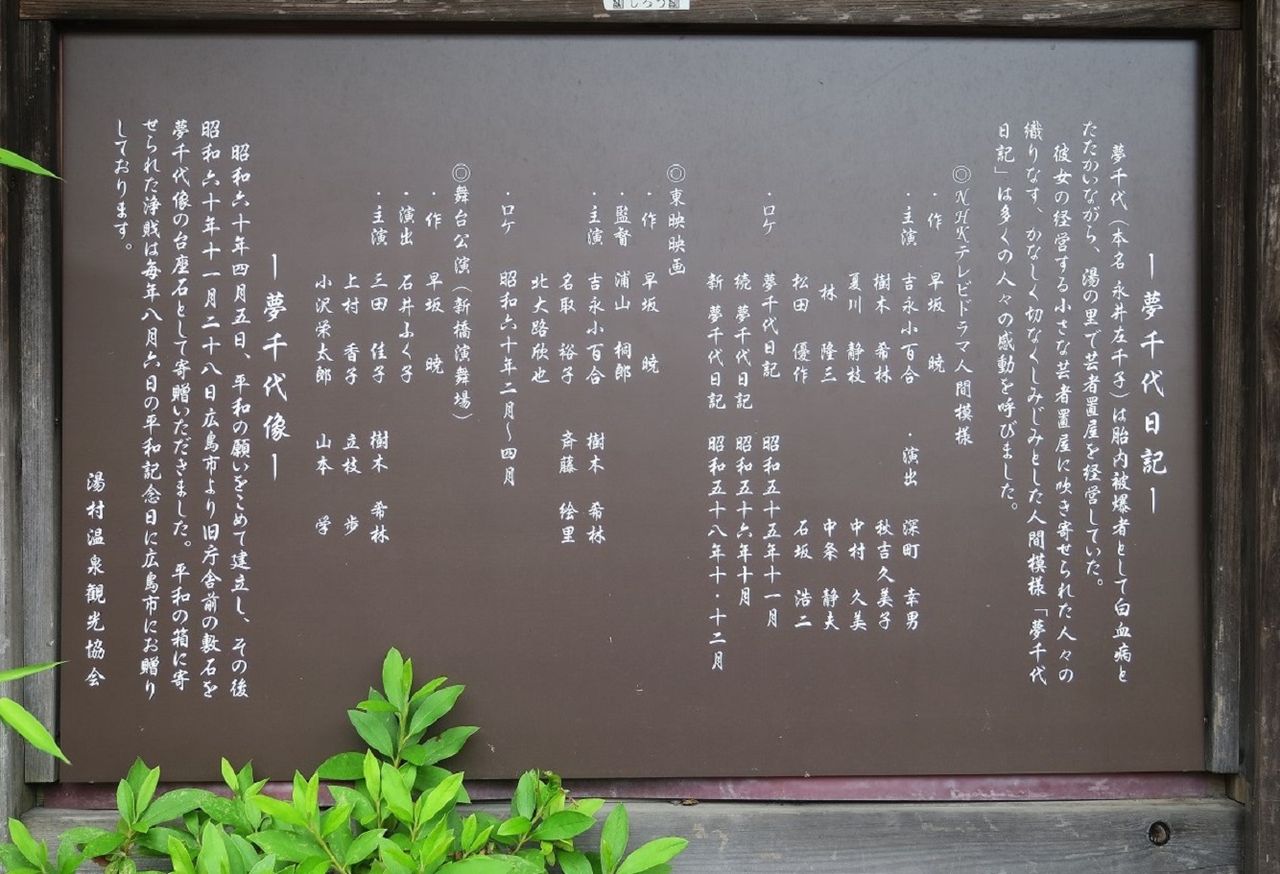 ー夢千代日記ー
夢千代（本名 永井左千子）は胎内被爆者として白血病と
たたかいながら、湯の里で芸者置屋を経営していた。
彼女の経営する小さな芸者置屋に吹き寄せられた人々の
織りなす、かなしく切なくしみじみとした人間模様「夢千代
日記」は多くの人々の感動を呼びました。
◎NHKテレビドラマ人間模様
・作 早坂 暁 ・演出 深町 幸男
・主演 吉永小百合 秋吉久美子
樹木 希林 中村 久美
夏川 静枝 中条 静夫
林 隆三 石坂 浩二
松田 優作
・ロケ 夢千代日記 昭和五十五年十一月
続 夢千代日記 昭和五十六年十月
新 夢千代日記 昭和五十八年十・十二月
◎東映映画
・作 早坂 暁
・監督 浦山 桐郎
・主演 吉永小百合 樹木 希林
名取 裕子 斉藤 絵里
北大路欣也
・ロケ 昭和六十年二月〜四月
◎舞台公演（新橋演舞場）
・作 早坂 暁
・演出 石井ふく子
・主演 三田 佳子 樹木 希林
上村 香子 立枝 歩
小沢栄太郎 山本 学
ー夢千代像ー
昭和六十年四月五日、平和の願いをこめて建立し、その後
昭和六十年十一月二十八日広島市より旧庁舎前の敷石を
夢千代像の台座石として寄贈いただきました。平和の箱に寄
せられた浄財は毎年八月六日の平和記念日に広島市にお贈り
しております。
湯村温泉観光協会